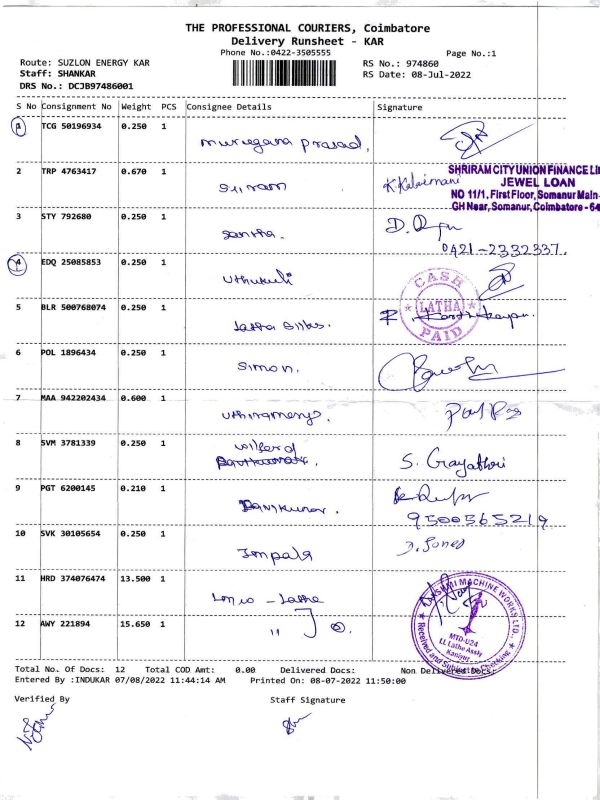 THE PROFESSIONAL COURIERS, Coimbatore
Delivery Runsheet - KAR
Phone No.:0422-3505555
Page No.:1
Route: SUZLON ENERGY KAR
RS No.: 974860
Staff: SHANKAR
RS Date: 08-Jul-2022
DRS No.: DCJB97486001
S No Consignment No Weight PCS Consignee Details Signature
1 TCG 50196934 0.250 1
murugana prasad,
2 TRP 4763417 0.670 1 Sriram K. Kalaimani
SHRIRAM CITY UNION FINANCE LI
JEWEL LOAN
NO 11/1, First Floor, Somanur Main
GH Near, Somanur, Coimbatore - 64
3 STY 792680 0.250 1 Santha.
0421-2332337.
4 EDQ 25085853 0.250 1 Uthukuli
CASH
LATHA
PAID
5 BLR 500768074 0.250 1
6 POL 1896434 0.250 1 Simon.
7 MAA 942202434 0.600 1
8 SVM 3781339 0.250 1
S. Gayathri
9 PGT 6200145 0.210 1
9500565219
10 SVK 30105654 0.250 1
D. Jones
11 HRD 374076474 13.500 1
12 AWY 221894 15.650 1 "
LAKSHMI MACHINE WORKS LTD.,
MTD-U24
LL Lathe Assly
Kaniyur
Received and Subject to Checking
Total No. Of Docs: 12 Total COD Amt: 0.00 Delivered Docs: Non Delivered Docs:
Entered By :INDUKAR 07/08/2022 11:44:14 AM Printed On: 08-07-2022 11:50:00
Verified By Staff Signature